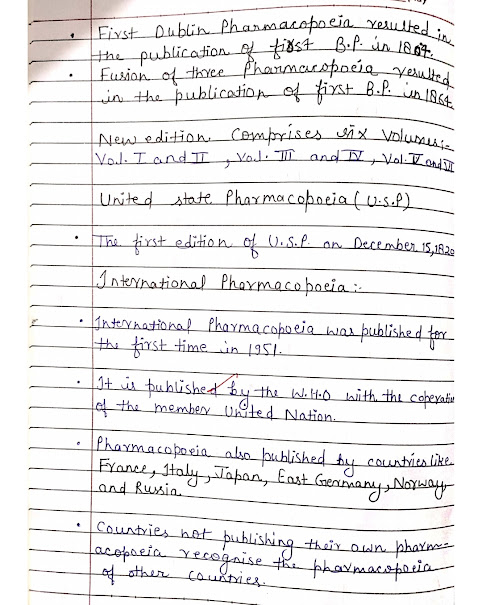 First Dublin Pharmacopoeia resulted in
the publication of first B.P. in 1864.
Fusion of three Pharmacopoeia resulted
in the publication of first B.P. in 1864.
New edition Comprises six volumes:-
Vol. I and II, Vol. III and IV, Vol. V and VI
United state Pharmacopoeia (U.S.P)
The first edition of U.S.P. on December 15, 1820
International Pharmacopoeia:-
International Pharmacopoeia was published for
the first time in 1951.
It is published by the W.H.O with the coperative
of the member United Nation.
Pharmacopoeia also published by countries like
France, Italy, Japan, East Germany, Norway
and Russia
Countries not publishing their own pharm-
acopoeia recognise the pharmacopoeia
of other countries.